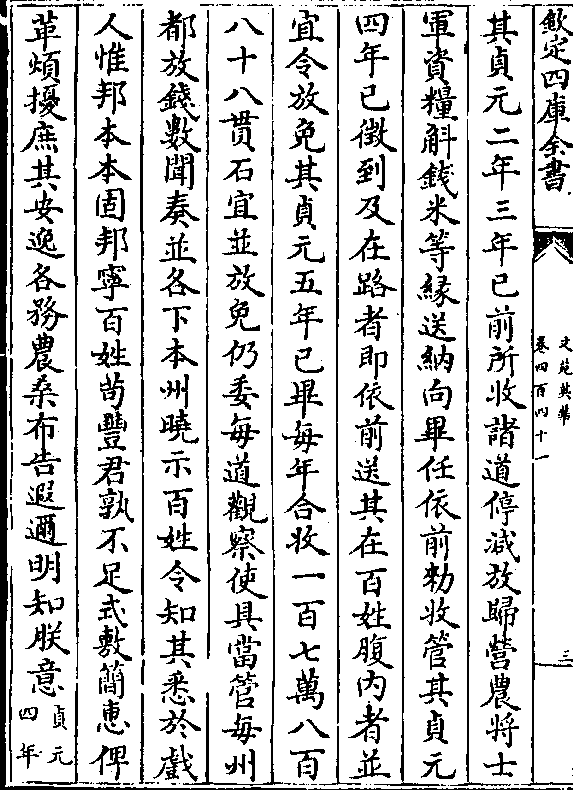 欽定四庫全書
文苑英華
卷四百四十一
三
其貞元二年三年已前所收諸道停減放歸營農將士
軍資糧斛錢米等縁送納向畢任依前勑收管其貞元
四年已徴到及在路者即依前送其在百姓腹内者並
宜令放免其貞元五年已畢每年合收一百七萬八百
八十八貫石宜並放免仍委每道觀察使具當管每州
都放錢數聞奏並各下本州曉示百姓令知其悉於戲
人惟邦本本固邦寧百姓苟豐君孰不足式敷簡惠俾
革煩擾庶其安逸各務農桑布告遐邇明知朕意貞元
四年